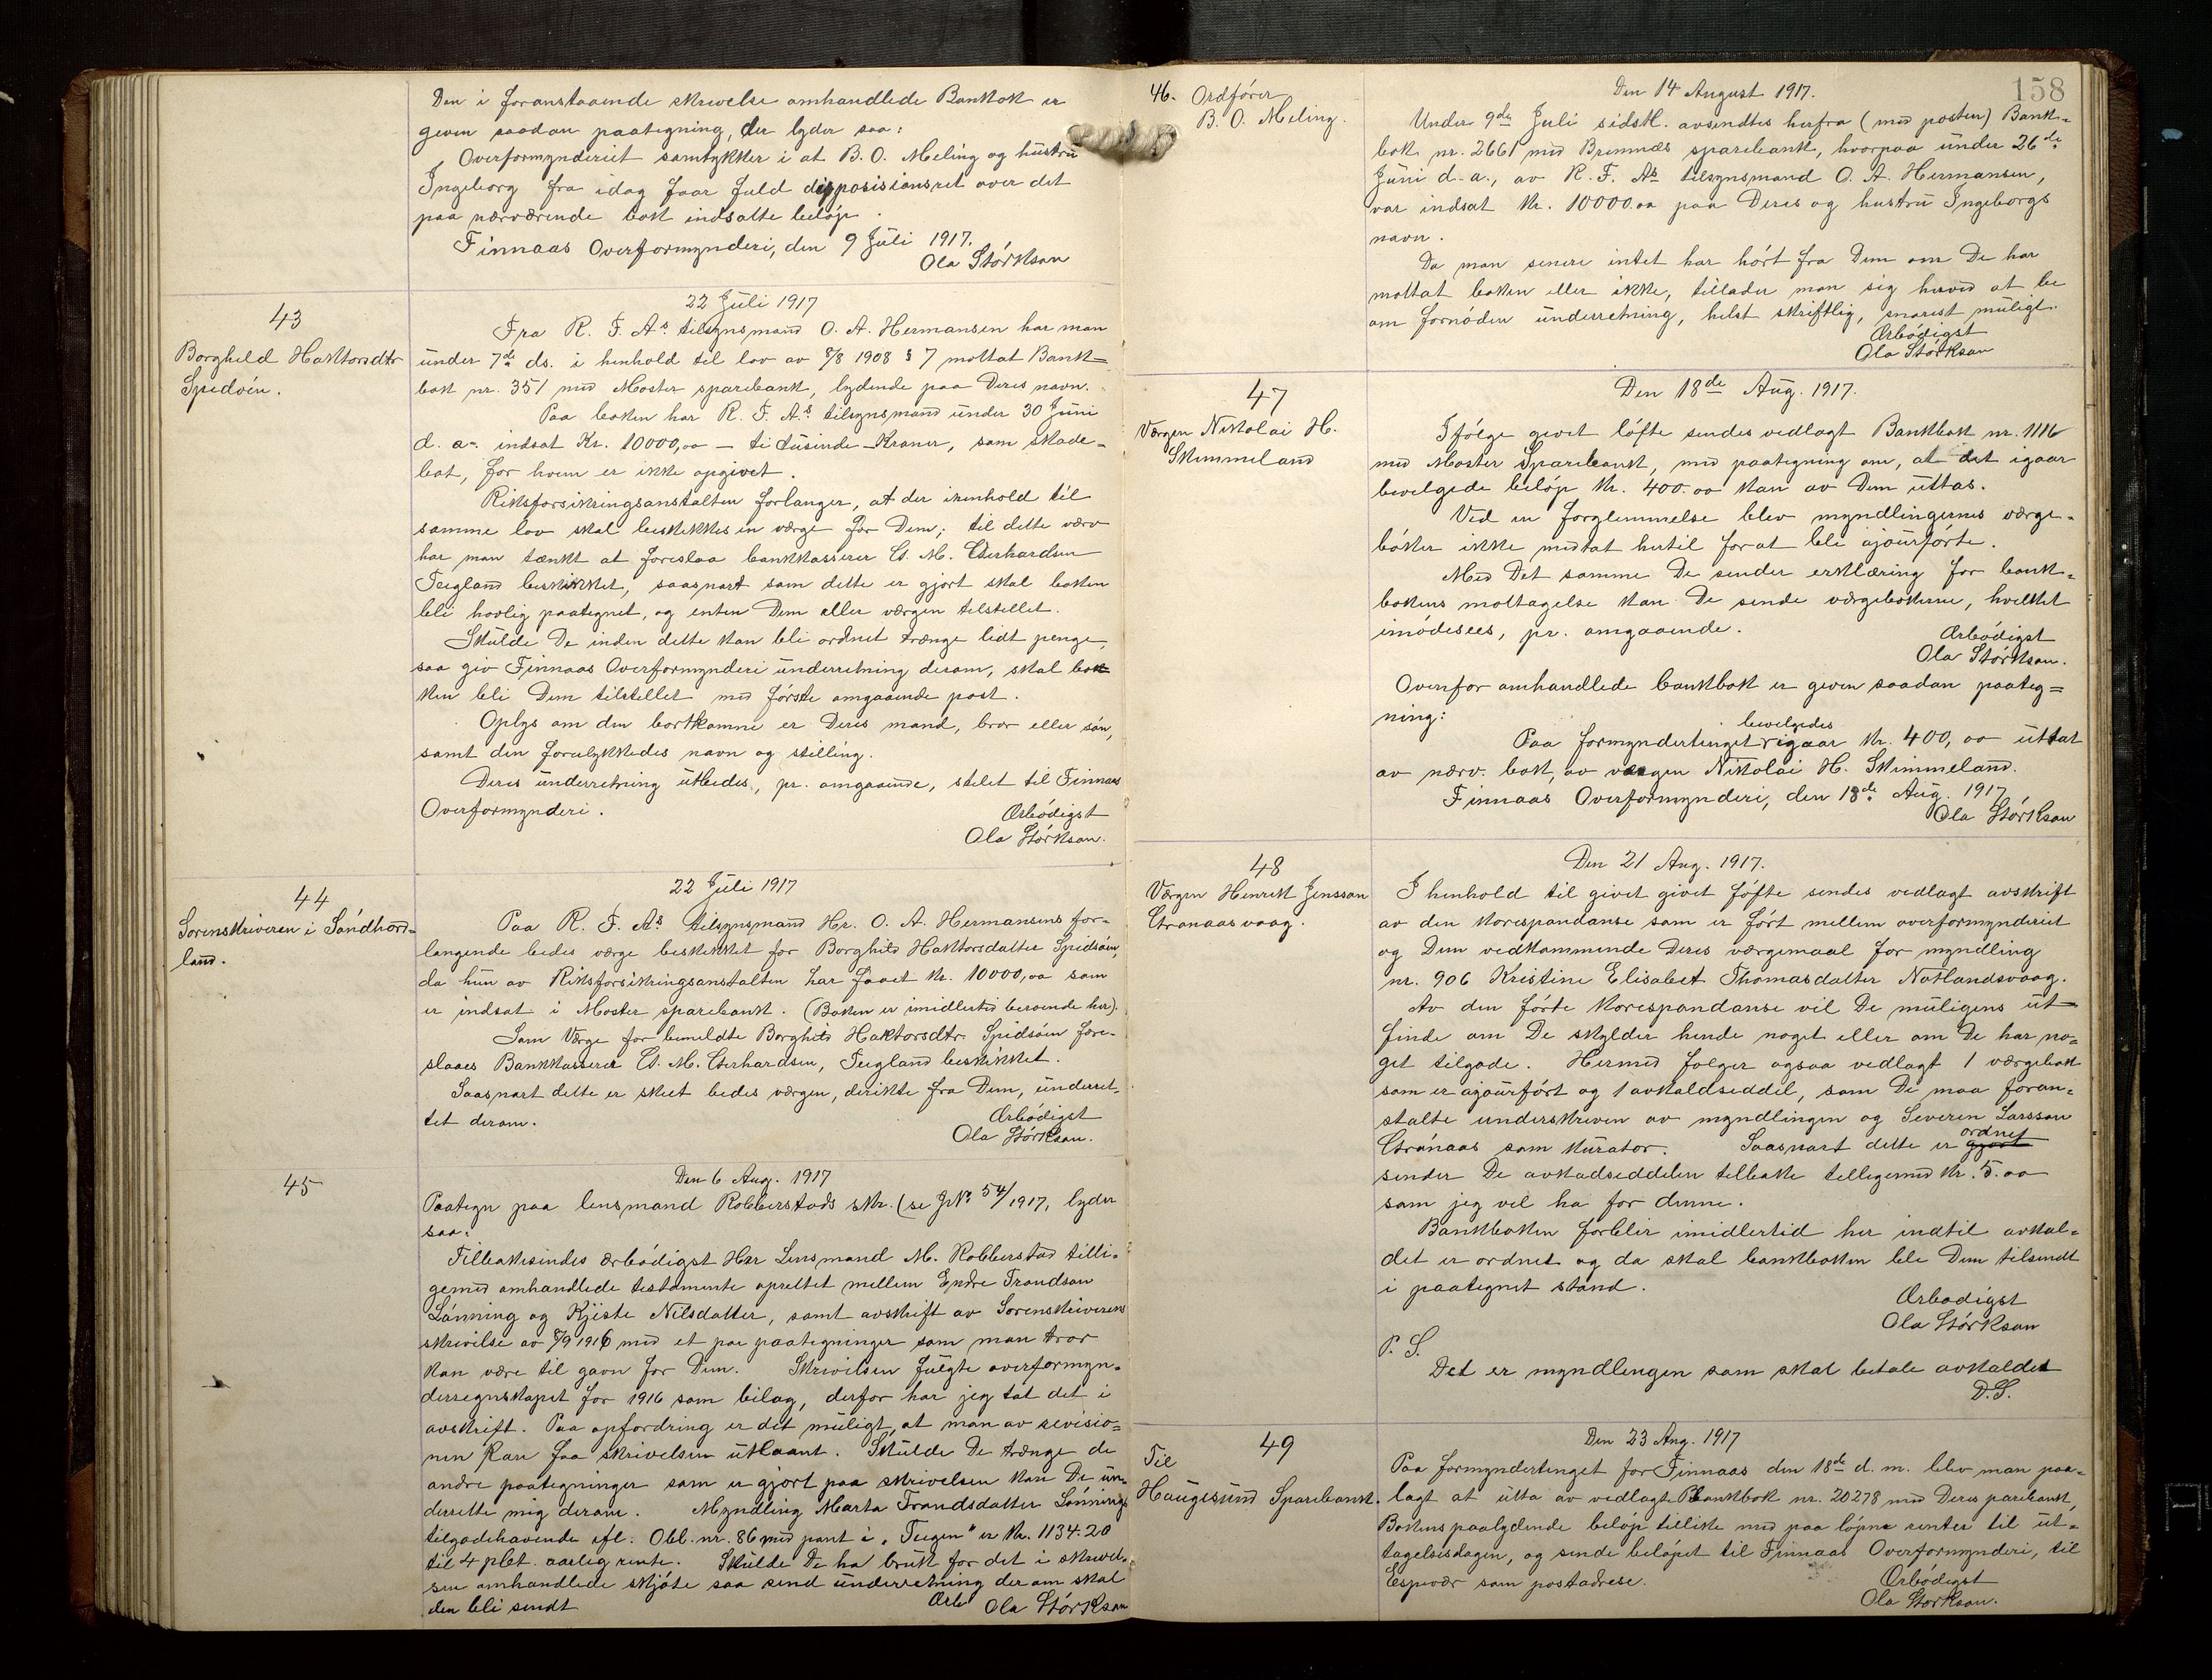 Den i foranstaaende skrivelse omhandlede Bankbok er
given saadan paategning, der lyder saa:
Overformynderiet samtykker i at B. O. Meling og hustru
Ingeborg fra idag faar fuld disposisionsret over det
paa nærværende bok indsatte beløp.
Finnaas Overformynderi, den 9 Juli 1917.
Ola Størkson
43
Borghild Haktorsdtr
Spidsöen.
22 Juli 1917
Fra R. F. As tilsynsmand O. A. Hermansen har man
under 7de ds. i henhold til lov av 8/8 1908 § 7 mottat Bank=
bok nr. 351 med Moster sparebank, lydende paa Deres navn.
Paa boken har R. F. As tilsynsmand under 30 Juni
d. a. indsat Kr. 10000,00 — ti tusinde Kroner, som skade-
bot, for hvem er ikke opgivet.
Riksforsikringsanstalten forlanger, at der ihenhold til
samme lov skal beskikkes en værge for Dem; til dette værv
har man tænkt at foreslaa bankkasserer E. M. Eberhardsen
Teigland beskikket, saasnart som dette er gjort skal boken
bli hovlig paategnet, og enten Dem eller værgen tilstillet.
Skulde De inden dette kan bli ordnet trænge lidt penge,
saa giv Finnaas Overformynderi underretning derom, skal bo
ken bli Dem tilstillet med første omgaaende post.
Oplys om den bortkomne er Deres mand, bror eller søn,
samt den forulykkedes navn og stilling.
Deres underretning utbedes, pr. omgaaende, stilet til Finnaas
Overformynderi.
Ærbødigst
Ola Størkson.
44
Sorenskriveren i Søndhord=
land.
22 Juli 1917
Paa R. F. As tilsynsmand Hr. O. A. Hermansens for-
langende bedes værge beskikket for Borghild Haktorsdatter Spidsöen,
da hun av Riksforsikringsanstalten har faaet Kr. 10000,00 som
er indsat i Moster sparebank. (Boken er imidlertid beroende her).
Som Værge for bemeldte Borghild Haktorsdtr. Spidsöen fore-
slaaes Bankkasserer E. M. Eberhardsen, Teigland beskikket.
Saasnart dette er skeet bedes værgen, dirikte fra Dem, underret-
tet derom.
Ærbødigst
Ola Størkson.
45
Den 6 Aug. 1917
Paategn paa lensmand Robberstads skr. (se J.No 54/1917, lyder
saa:
Tilbakesendes ærbødigst Hr. Lensmand M. Robberstad tilli-
gemed omhandlede testamente oprettet mellem Endre Trondson
Lønning og Kjiste Nilsdatter, samt avskrift av Sorenskriverens
skrivelse av 8/9 1916 med et par paategninger som man tror
kan være til gavn for Dem. Skrivelsen fulgte overformyn-
derregnskapet for 1916 som bilag, derfor har jeg tat det i
avskrift. Paa opfordring er det muligt, at man av revisio=
nen kan faa skrivelsen utlaant. Skulde De trænge de
andre paategninger som er gjort paa skrivelsen kan De un-
derrette mig derom. Myndling Marta Trondsdatter Lønnings
tilgodehavende efl. Obl. nr. 86 med pant i "Teigen" er Kr. 1134.20
til 4 pct. aarlig rente. Skulde De ha bruk for det i skrivel-
sen omhandlede skjøte saa send underretning derom skal
den bli sendt
Ærb Ola Størkson
158
46. Ordfører
B. O. Meling.
Den 14 August 1917.
Under 9de Juli sidstl. avsendtes herfra (med posten) Bank=
bok nr. 2661 med Bremnæs sparebank, hvorpaa under 26de
Juni d. a., av R. F. As tilsynsmand O. A. Hermansen,
var indsat Kr. 10000.00 paa Deres og hustru Ingeborgs
navn.
Da man senere intet har hørt fra Dem om De har
mottat boken eller ikke, tillader man sig herved at be
om fornøden underretning, helst skriftlig, snarest muligt.
Ærbødigst
Ola Størkson
47
Værgen Nikolai H.
Skimmeland
Den 18de Aug. 1917.
Ifølge givet løfte sendes vedlagt Bankbok nr. 1116
med Moster Sparebank, med paategning om, at det igaar
bevilgede beløp Kr. 400.00 kan av Dem uttas.
Ved en forglemmelse blev myndlingernes værge-
bøker ikke medtat hertil for at bli ajourførte.
Med Det samme De sender erklæring for bank-
bokens mottagelse kan De sende værgebøkerne, hvilket
imødesees, pr. omgaaende.
Ærbødigst
Ola Størkson.
Ovenfor omhandlede bankbok er given saadan paateg=
ning:
Paa formyndertinget bevilgedes igaar Kr. 400,00 uttat
av nærv. bok, av værgen Nikolai H. Skimmeland.
Finnaas Overformynderi, den 18de Aug. 1917
Ola Størkson
48
Værgen Henrik Jensson
Stranaasvaag.
Den 21 Aug. 1917.
I henhold til givet givet løfte sendes vedlagt avskrift
av den korespondanse som er ført mellem overformynderiet
og Dem vedkommende Deres værgemaal for myndling
nr. 906 Kristine Elisabet Thomasdatter Notlandsvaag.
Av den førte korespondanse vil De muligens ut-
finde om De skylder hende noget eller om De har no=
get tilgode. Hermed følger ogsaa vedlagt 1 værgebok
som er ajourført og 1 avkaldseddil, som De maa foran-
stalte underskreven av myndlingen og Severin Larsson
Stranaas som kurator. Saasnart dette er gjort ordnet
sender De avkadseddelen tilbake tillegemed Kr. 5.00
som jeg vil ha for denne.
Bankboken forblir imidlertid her indtil avkal-
det er ordnet og da skal bankboken bli Dem tilsendt
i paategnet stand.
Ærbødigst
Ola Størkson
P. S.
Det er myndlingen som skal betale avkaldet
D.S.
49
Til
Haugesund Sparebank.
Den 23 Aug. 1917
Paa formyndertinget for Finnaas den 18de d. m. blev man paa-
lagt at utta av vedlagte Bankbok nr. 20278 med Deres parebank,
Bokens paalydende beløp tillike med paa løpne renter til ut-
tagelsesdagen, og sende beløpet til Finnaas Overformynderi, til
Espevær som postadrese.
Ærbødigst
Ola Størkson.